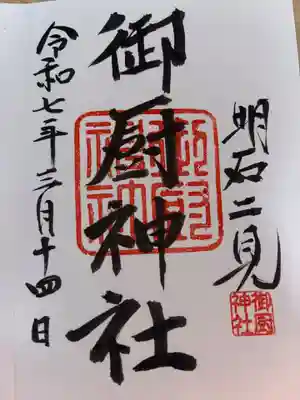 明石二見
御厨神社
令和七年三月十四日
御厨
神社